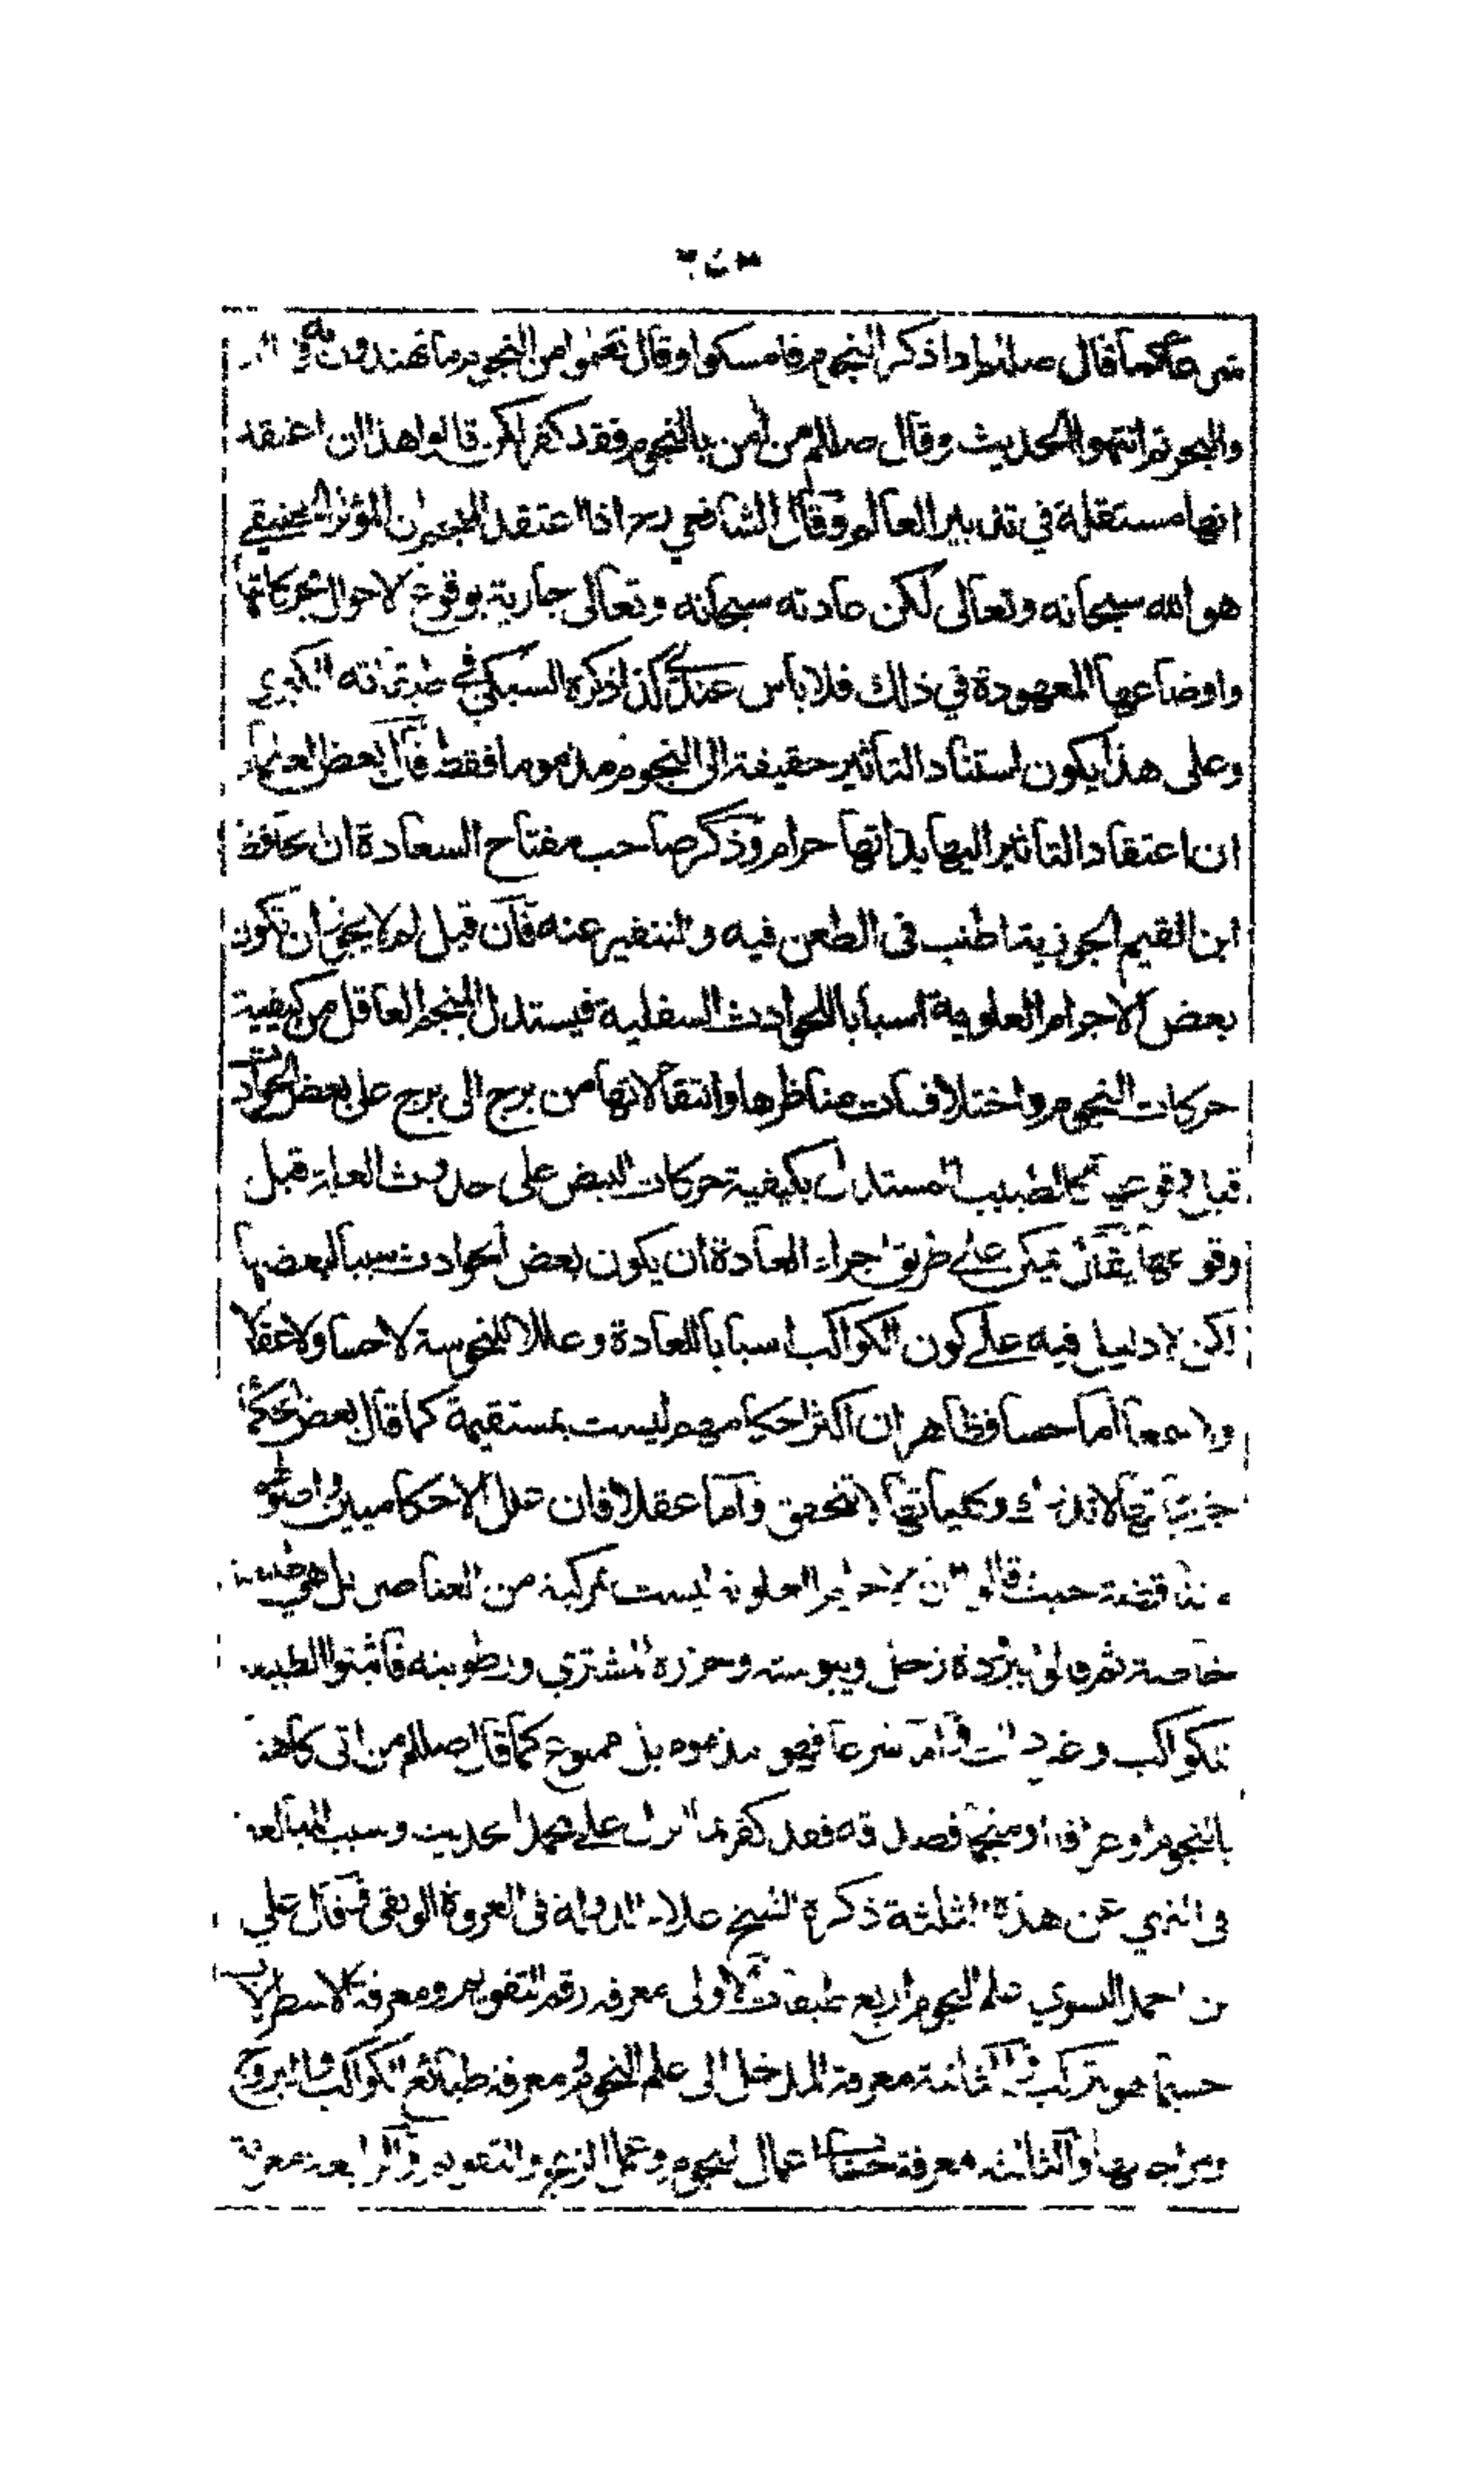 شرعا كما قال صلعم اذا ذكر النجوم فامسكوا وقال تعلموا من النجوم ما تهتدون به في البر
والبحر ثم انتهوا الحديث وقال صلعم من امن بالنجوم فقد كفر لكن قالوا هذا ان اعتقد
انها مستقلة في تدبير العالم وقال الشافعي رح اذا اعتقد المنجم ان المؤثر الحقيقي
هو الله سبحانه وتعالى لكن عادته سبحانه وتعالى جارية بوقوع الاحوال بحركاتها
واوضاعها المعهودة في ذلك فلا باس عندي كذا ذكره السبكي في طبقاته الكبرى
وعلى هذا يكون استناد التاثير حقيقة الى النجوم مذموما فقط قال بعض العلماء
ان اعتقاد التاثير اليها بذاتها حرام وذكر صاحب مفتاح السعادة ان الحافظ
ابن القيم الجوزية اطنب في الطعن فيه والتنفير عنه فان قيل لم لا يجوز ان تكون
بعض الاجرام العلوية اسبابا للحوادث السفلية فيستدل المنجم العاقل من كيفية
حركات النجوم واختلافات مناظرها وانتقالاتها من برج الى برج على بعض الحوادث
قبل وقوعها كالطبيب المستدل بكيفية حركات النبض على حدوث العلة قبل
وقوعها يقال يمكن على طريق اجراء العادة ان يكون بعض الحوادث سببا لبعضها
لكن لا دليل فيه على كون الكواكب اسبابا للعادة وعللا للنحوسة لا حسا ولا عقلا
ولا سمعا اما حسا فظاهر ان اكثر احكامهم ليست بمستقيمة كما قال بعض الحكماء
جزئياتها لا تدرك وكلياتها لا تتحقق واما عقلا فان علل الاحكاميين واصولهم
متناقضة حيث قالوا ان الاجرام العلوية ليست بمركبة من العناصر بل هي طبيعة
خاصة ثم قالوا ببرودة زحل ويبوسته وحرارة المشتري ورطوبته فاثبتوا الطبيعة
للكواكب وغير ذلك واما شرعا فهو مذموم بل ممنوع كما قال صلعم من اتى كاهنا
بالنجوم او عرافا او منجما فصدقه فقد كفر بما انزل على محمد الحديث وسبب المبالغة
في النهي عن هذه الثلثة ذكره الشيخ علاء الدولة في العروة الوثقى قال علي
بن احمد النسوي علم النجوم اربع طبقات الاولى معرفة رقم التقويم ومعرفة الاسطرلاب
حسبما هو يتركب والثانية معرفة المدخل الى علم النجوم ومعرفة طبائع الكواكب والبروج
ومزاجيها والثالثة معرفة حساب اعمال النجوم وعمل الزيج والتقويم والرابعة معرفة